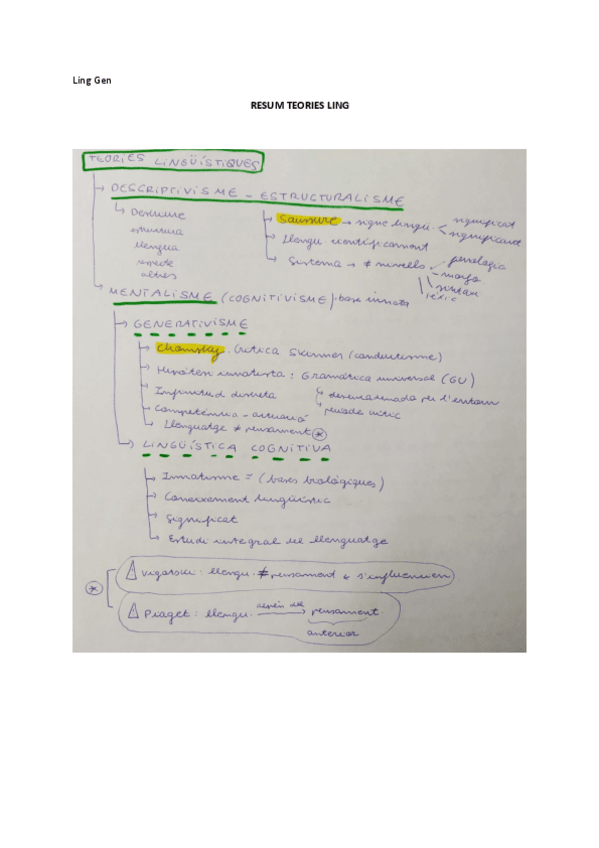 Ling Gen
RESUM TEORIES LING
TEORIES LINGÜÍSTIQUES
DESCRIPTIVISME - ESTRUCTURALISME
Descriure
estructura
llengua
respecte
altres
Saussure → signe lingü. significat
significant
Llengu. científicament
Sistema → ≠ nivells fonologia
morfo
sintaxi
lèxic
MENTALISME (COGNITIVISME): base innata
GENERATIVISME
Chomsky. Crítica Skinner (conductisme)
Hipòtesi innatista: Gramàtica universal (GU)
Infinitud discreta
desencadenada per l'entorn
Competència - actuació
període crític
Llenguatge ≠ pensament *
LINGÜÍSTICA COGNITIVA
Innatisme = (bases biològiques)
Coneixement lingüístic
Significat
Estudi integral del llenguatge
* Vigotski: llengu. ≠ pensament s'influencien
Piaget: llengu. pensament
anterior